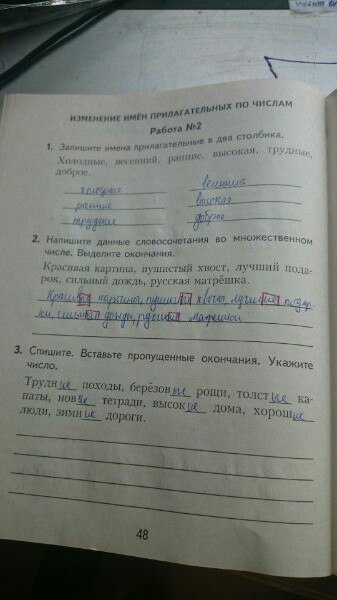 ИЗМЕНЕНИЕ ИМЁН ПРИЛАГАТЕЛЬНЫХ ПО ЧИСЛАМ
Работа №2
1. Запишите имена прилагательные в два столбика.
Холодные, весенний, ранние, высокая, трудные,
доброе.
холодные весенний
ранние высокая
трудные доброе
2. Напишите данные словосочетания во множественном
числе. Выделите окончания.
Красивая картина, пушистый хвост, лучший пода-
рок, сильный дождь, русская матрёшка.
картины, пушистые хвосты, лучшие подар-
ки, сильные дожди, русские
3. Спишите. Вставьте пропущенные окончания. Укажите
число.
Трудные походы, берёзовые рощи, толстые ка-
наты, новые тетради, высокие дома, хорошие
люди, зимние дороги.
48